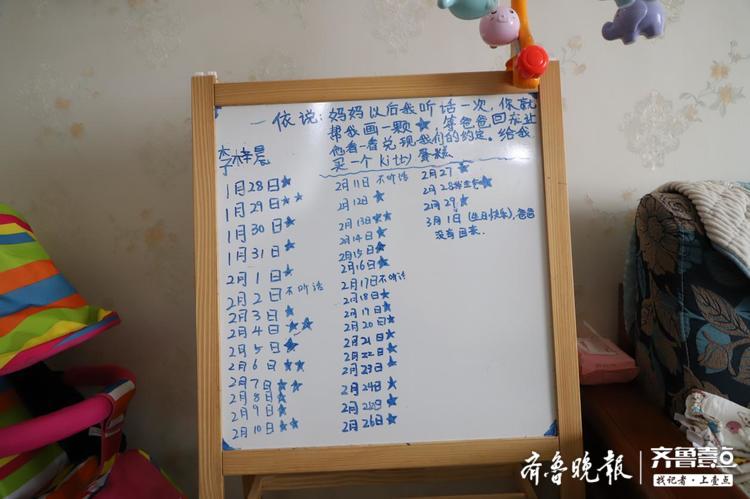 一依说：妈妈以后我听话一次，你就
帮我画一颗★，等爸爸回来让
他看一看兑现我们的约定。给我
买一个Kitty蛋糕
1月28日★
1月29日★★
1月30日★
1月31日★
2月1日★
2月2日不听话
2月3日★
2月4日★★
2月5日★
2月6日★★
2月7日★★
2月8日★
2月9日★
2月10日★★
2月11日不听话
2月12日★
2月13日★★
2月14日★
2月15日★
2月16日★
2月17日不听话
2月18日★
2月19日★
2月20日★
2月21日★
2月22日★
2月23日★
2月24日★
2月25日★
2月26日★
2月27★
2月28★
2月29★
3月1日(生日快乐),爸爸
没有回来.
齐鲁晚报
齐鲁壹点
找记者·上壹点